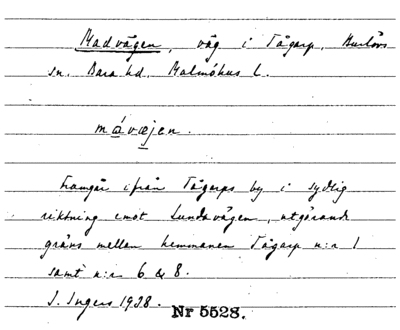 Madvägen, väg i Tågarp, Burlövs
sn. Bara hd. Malmöhus L.
måvæjen.
Framgår ifrån Tågarps by i sydlig
riktning emot Lundavägen, utgörande
gräns mellan hemmanen Tågarp n:r 1
samt n:r 6 & 8.
I. Ingers 1928. Nr 5528.